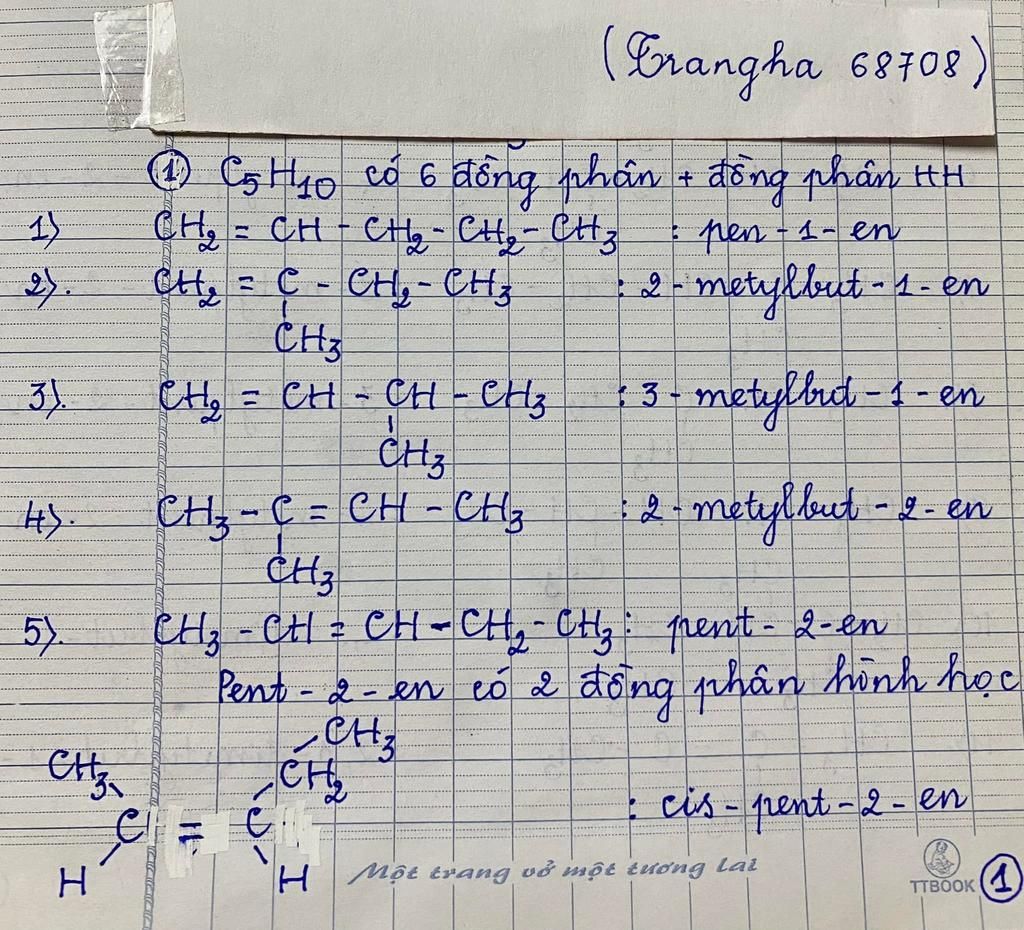 (Trangha 68708)
① C₅H₁₀ có 6 đồng phân + đồng phân HH
1) CH₂ = CH - CH₂ - CH₂ - CH₃ : pen - 1 - en
2). CH₂ = C - CH₂ - CH₃ : 2 - metylbut - 1 - en
CH₃
3). CH₂ = CH - CH - CH₃ : 3 - metylbut - 1 - en
CH₃
4). CH₃ - C = CH - CH₃ : 2 - metylbut - 2 - en
CH₃
5). CH₃ - CH = CH - CH₂ - CH₃ : pent - 2 - en
Pent - 2 - en có 2 đồng phân hình học
CH₃
CH₃ CH₂
C = C : cis - pent - 2 - en
H H
Một trang vở một tương lai
TTBOOK ①